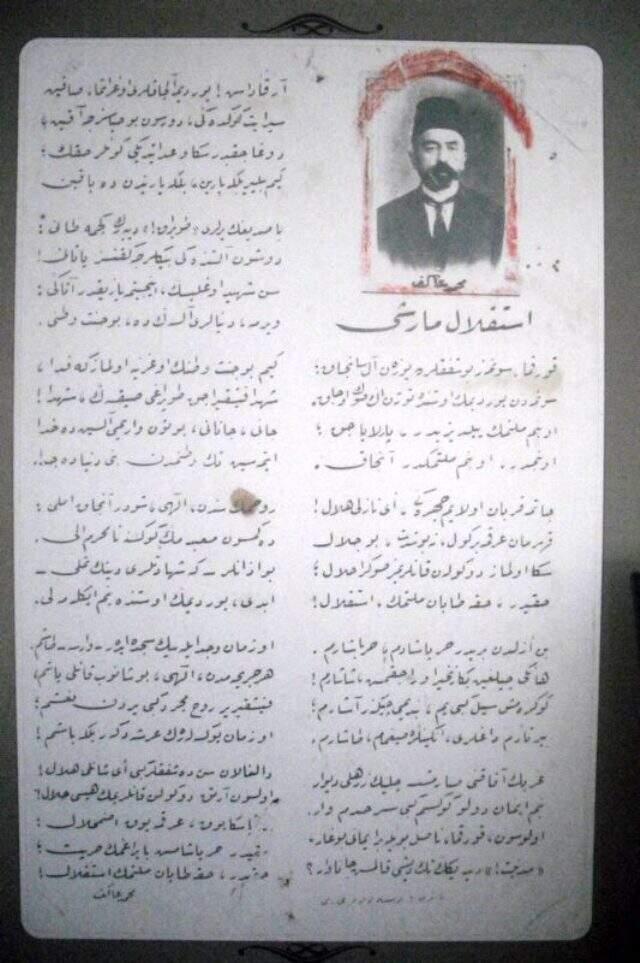 محمد عاكف
استقلال مارشى
قورقما، سونمز بو شفقلرده يوزن آل سانجاق؛
سونمه‌دن يورديمك اوستنده توتن اك صوك اوجاق.
او بنم ملتمك ييلديزيدر، پارلاياجق؛
او بنمدر، او بنم ملتمكدر آنجاق.
چاتمه قربان اولايم چهره‌كى، اى نازلى هلال!
قهرمان عرقمه بر كول، نه بو شدت، بو جلال
سكا اولماز دوكولن قانلريمز صوكرا حلال؛
حقيدر، حقه طاپان ملتمك، استقلال!
بن ازلدن بريدر حر ياشادم، حر ياشارم.
هانكى چيلغين بكا زنجير اوراجقمش، شاشارم!
كوكره‌مش سيل كبى يم، بنديمى چيكنر آشارم؛
ييرتارم داغلرى، انكينلره صيغمام، طاشارم.
غربك آفاقنى صارمشسه چليك زرهلى ديوار
بنم ايمان دولو كوكسم كبى سرحدم وار.
اولوسون، قورقما، ناصل بويله بر ايمانى بوغار،
«مدنيت!» ديديكك تك ديشى قالمش جاناوار؟
آرقاداش! يورديمه آلچاقلرى اوغراتما، صاقين
سپر ايت كوكده‌كى، دورسون بو حياسزجه آقين؛
دوغاجقدر سكا وعد ايتديكى كونلر حقك؛
كيم بيلير، بلكه يارين، بلكه ياريندن ده ياقين
باصديغك يرلرى «طوپراق!» دييه‌رك كچمه، طانى!
دوشون آلتنده‌كى بيكلرجه كفنسز ياتانى!
سن شهيد اوغليسك، اينجيتمه، يازيقدر، آتاكى؛
ويرمه، دنيالرى آلسه‌ك ده، بو جنت وطنى.
كيم بو جنت وطنك اوغرينه اولماز كه فدا،
شهدا فيشقيراجق طوپراغى صيقسه‌ك، شهدا!
جانى، جانانى، بوتون واريمى آلسين ده خدا
ايتمه‌سين تك وطنمدن بنى دنياده جدا.
روحمك سندن، الهى، شودر آنجاق املى:
دكمه‌سين معبدمك كوكسنه نامحرم الى.
بو اذانلر - كه شهادتلرى دينك تملى -
ابدى، يورديمك اوستنده بنم ايكله‌ملى.
او زمان وجد ايله بيك سجده ايدر - وارسه - طاشم.
هر جريحه‌مدن، الهى، بوشانوب قانلى ياشم،
فيشقيرير روح مجرد كبى يردن نعشم؛
او زمان يوكسله‌رك عرشه دكر بلكه باشم!
دالغالان سن ده شفقلر كبى اى شانلى هلال!
اولسون آرتق دوكولن قانلريمك هپسى حلال!
ابديا سكا يوق، عرقمه يوق اضمحلال؛
حقيدر حر ياشامش بايراغمك حريت؛
حقيدر، حقه طاپان ملتمك استقلال!
محمد عاكف